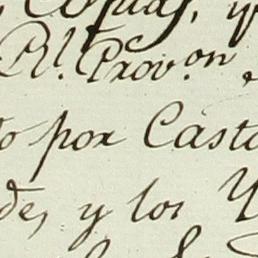 Copias, y
Rl. Prov.on
por Casta
de, y los